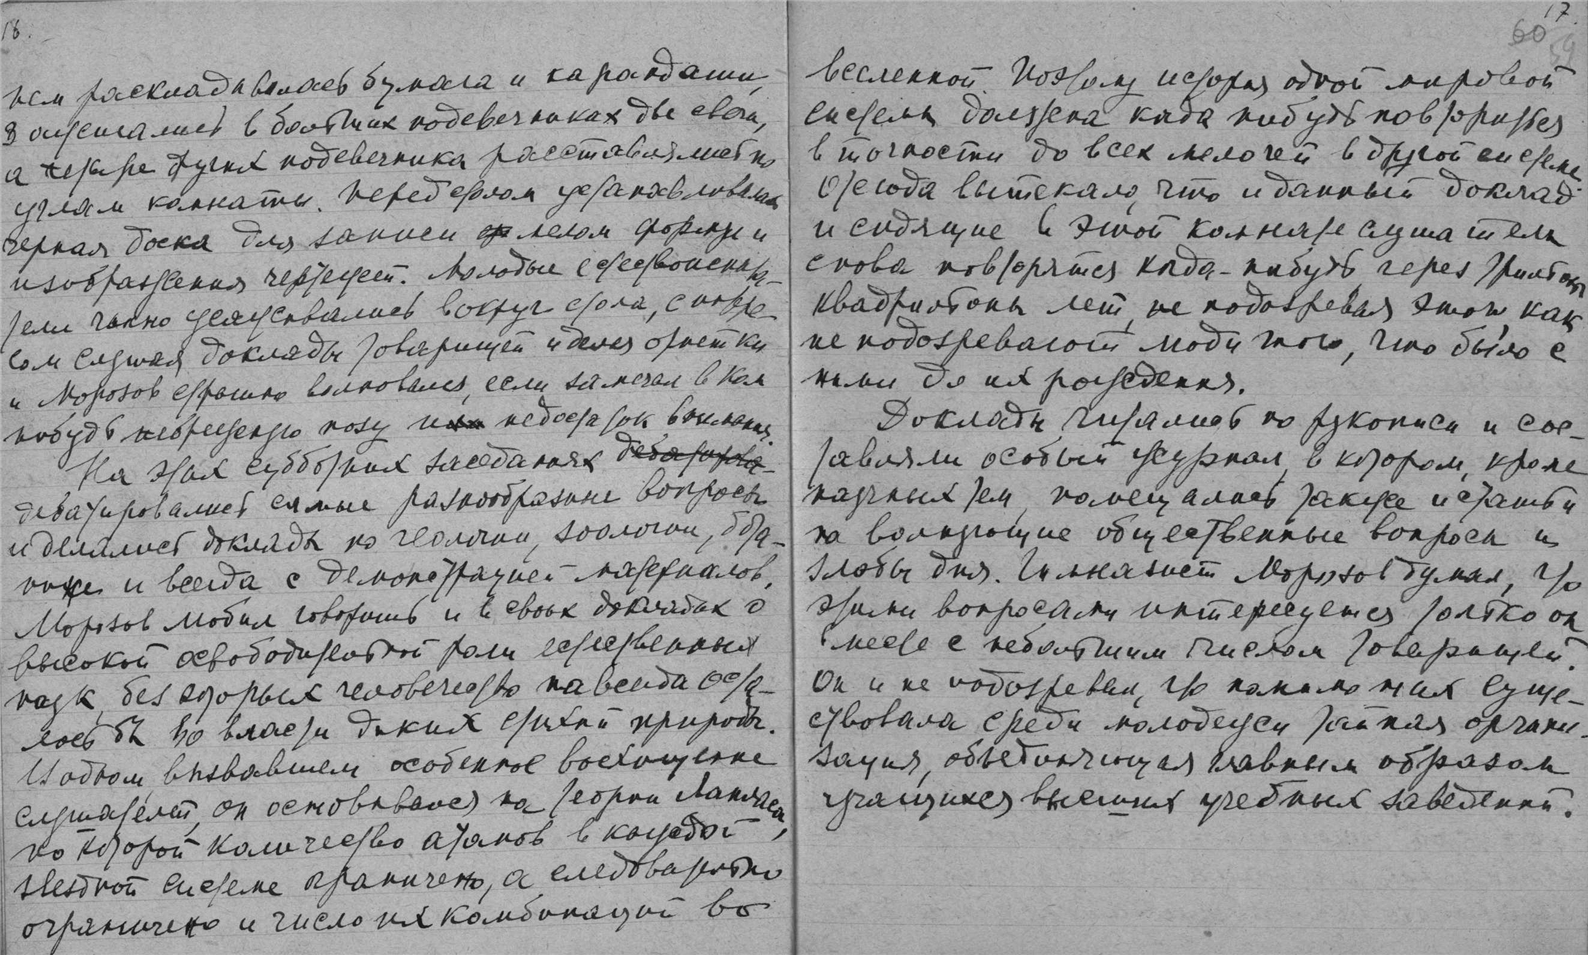 16.
нем раскладывалась бумага и карандаши,
зажигались в больших подсвечниках две свечи,
а четыре других подсвечника расставлялись по
углам комнаты. Перед столом устанавливалась
черная доска для записи мелом формул и
изображения чертежей. Молодые естествоиспыта-
тели чинно усаживались вокруг стола, с интере-
сом слушая доклады товарищей и делая отметки
и Морозов страшно волновался, если замечал в ком
нибудь небрежную позу или недостаток внимания.
На этих субботних заседаниях дебатирова-
дебатировались самые разнообразные вопросы
и делались доклады по геологии, зоологии, бота-
нике и всегда с демонстрацией материалов.
Морозов любил говорить и в своих докладах о
высокой освободительной роли естественных
наук, без которых человечество навсегда оста-
лось бы во власти диких стихий природы.
В одном, вызвавшем особенное восхищение
слушателей, он основывался на теории Лапласа,
по которой количество атомов в каждой
звездной системе ограничено, а следовательно
ограничено и число их комбинаций во
17.
60
59
вселенной. Поэтому история одной мировой
системы должна когда нибудь повториться
в точности до всех мелочей в другой системе.
Отсюда вытекало, что и данный доклад
и сидящие в этой комнате слушатели
снова повторятся когда-нибудь через триллионы
квадрильоны лет, не подозревая этого как
не подозревают люди того, что было с
ними до их рождения.
Доклады читались по рукописи и сос-
тавляли особый журнал, в котором, кроме
научных тем, помещались также и статьи
на волнующие общественные вопросы и
злобы дня. Гимназист Морозов думал, что
этими вопросами интересуется только он
вместе с небольшим числом товарищей.
Он и не подозревал, что помимо них суще-
ствовала среди молодежи тайная органи-
зация, объединяющая главным образом
учащихся высших учебных заведений.